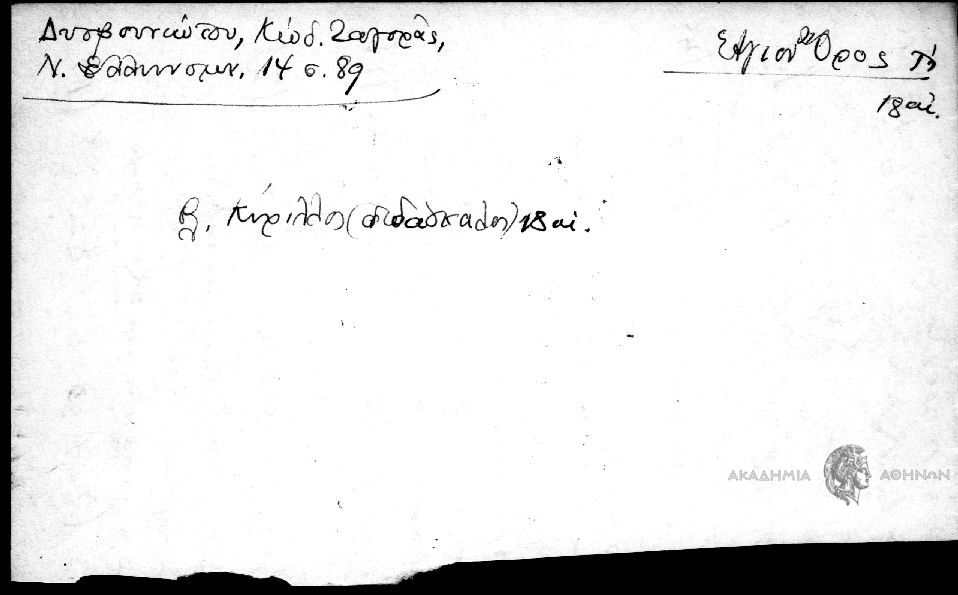 Δυοβουνιώτου, Κώδ. Ζαγοράς,
Ν. Ελληνομν. 14 σ. 89
Άγιον Όρος Τὸ
18 αἰ.
βλ. Κύριλλος (διδάσκαλος) 18 αἰ.
ΑΚΑΔΗΜΙΑ ΑΘΗΝΩΝ